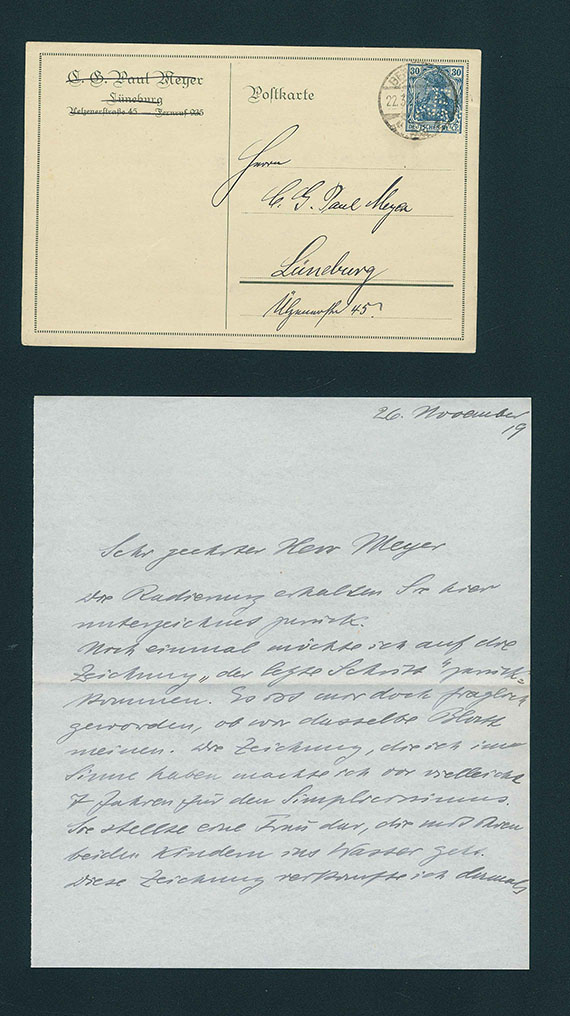 C. G. Paul Meyer
Lüneburg
Uelzenerstraße 45 Fernruf 935
Postkarte
30 30
22.3.
Herrn
C. G. Paul Meyer
Lüneburg
Ülzenerstr 45.
26. November
19
Sehr geehrter Herr Meyer
Die Radierung erhalten Sie hier
unterzeichnet zurück.
Noch einmal möchte ich auf die
Zeichnung „der letzte Schritt“ zurück=
kommen. Es ist mir doch fraglich
geworden, ob wir dasselbe Blatt
meinen. Die Zeichnung, die ich im
Sinne haben machte ich vor vielleicht
7 Jahren für den Simplicissimus.
Sie stellte eine Frau dar, die mit ihren
beiden Kindern ins Wasser geht.
Diese Zeichnung verkaufte ich damals